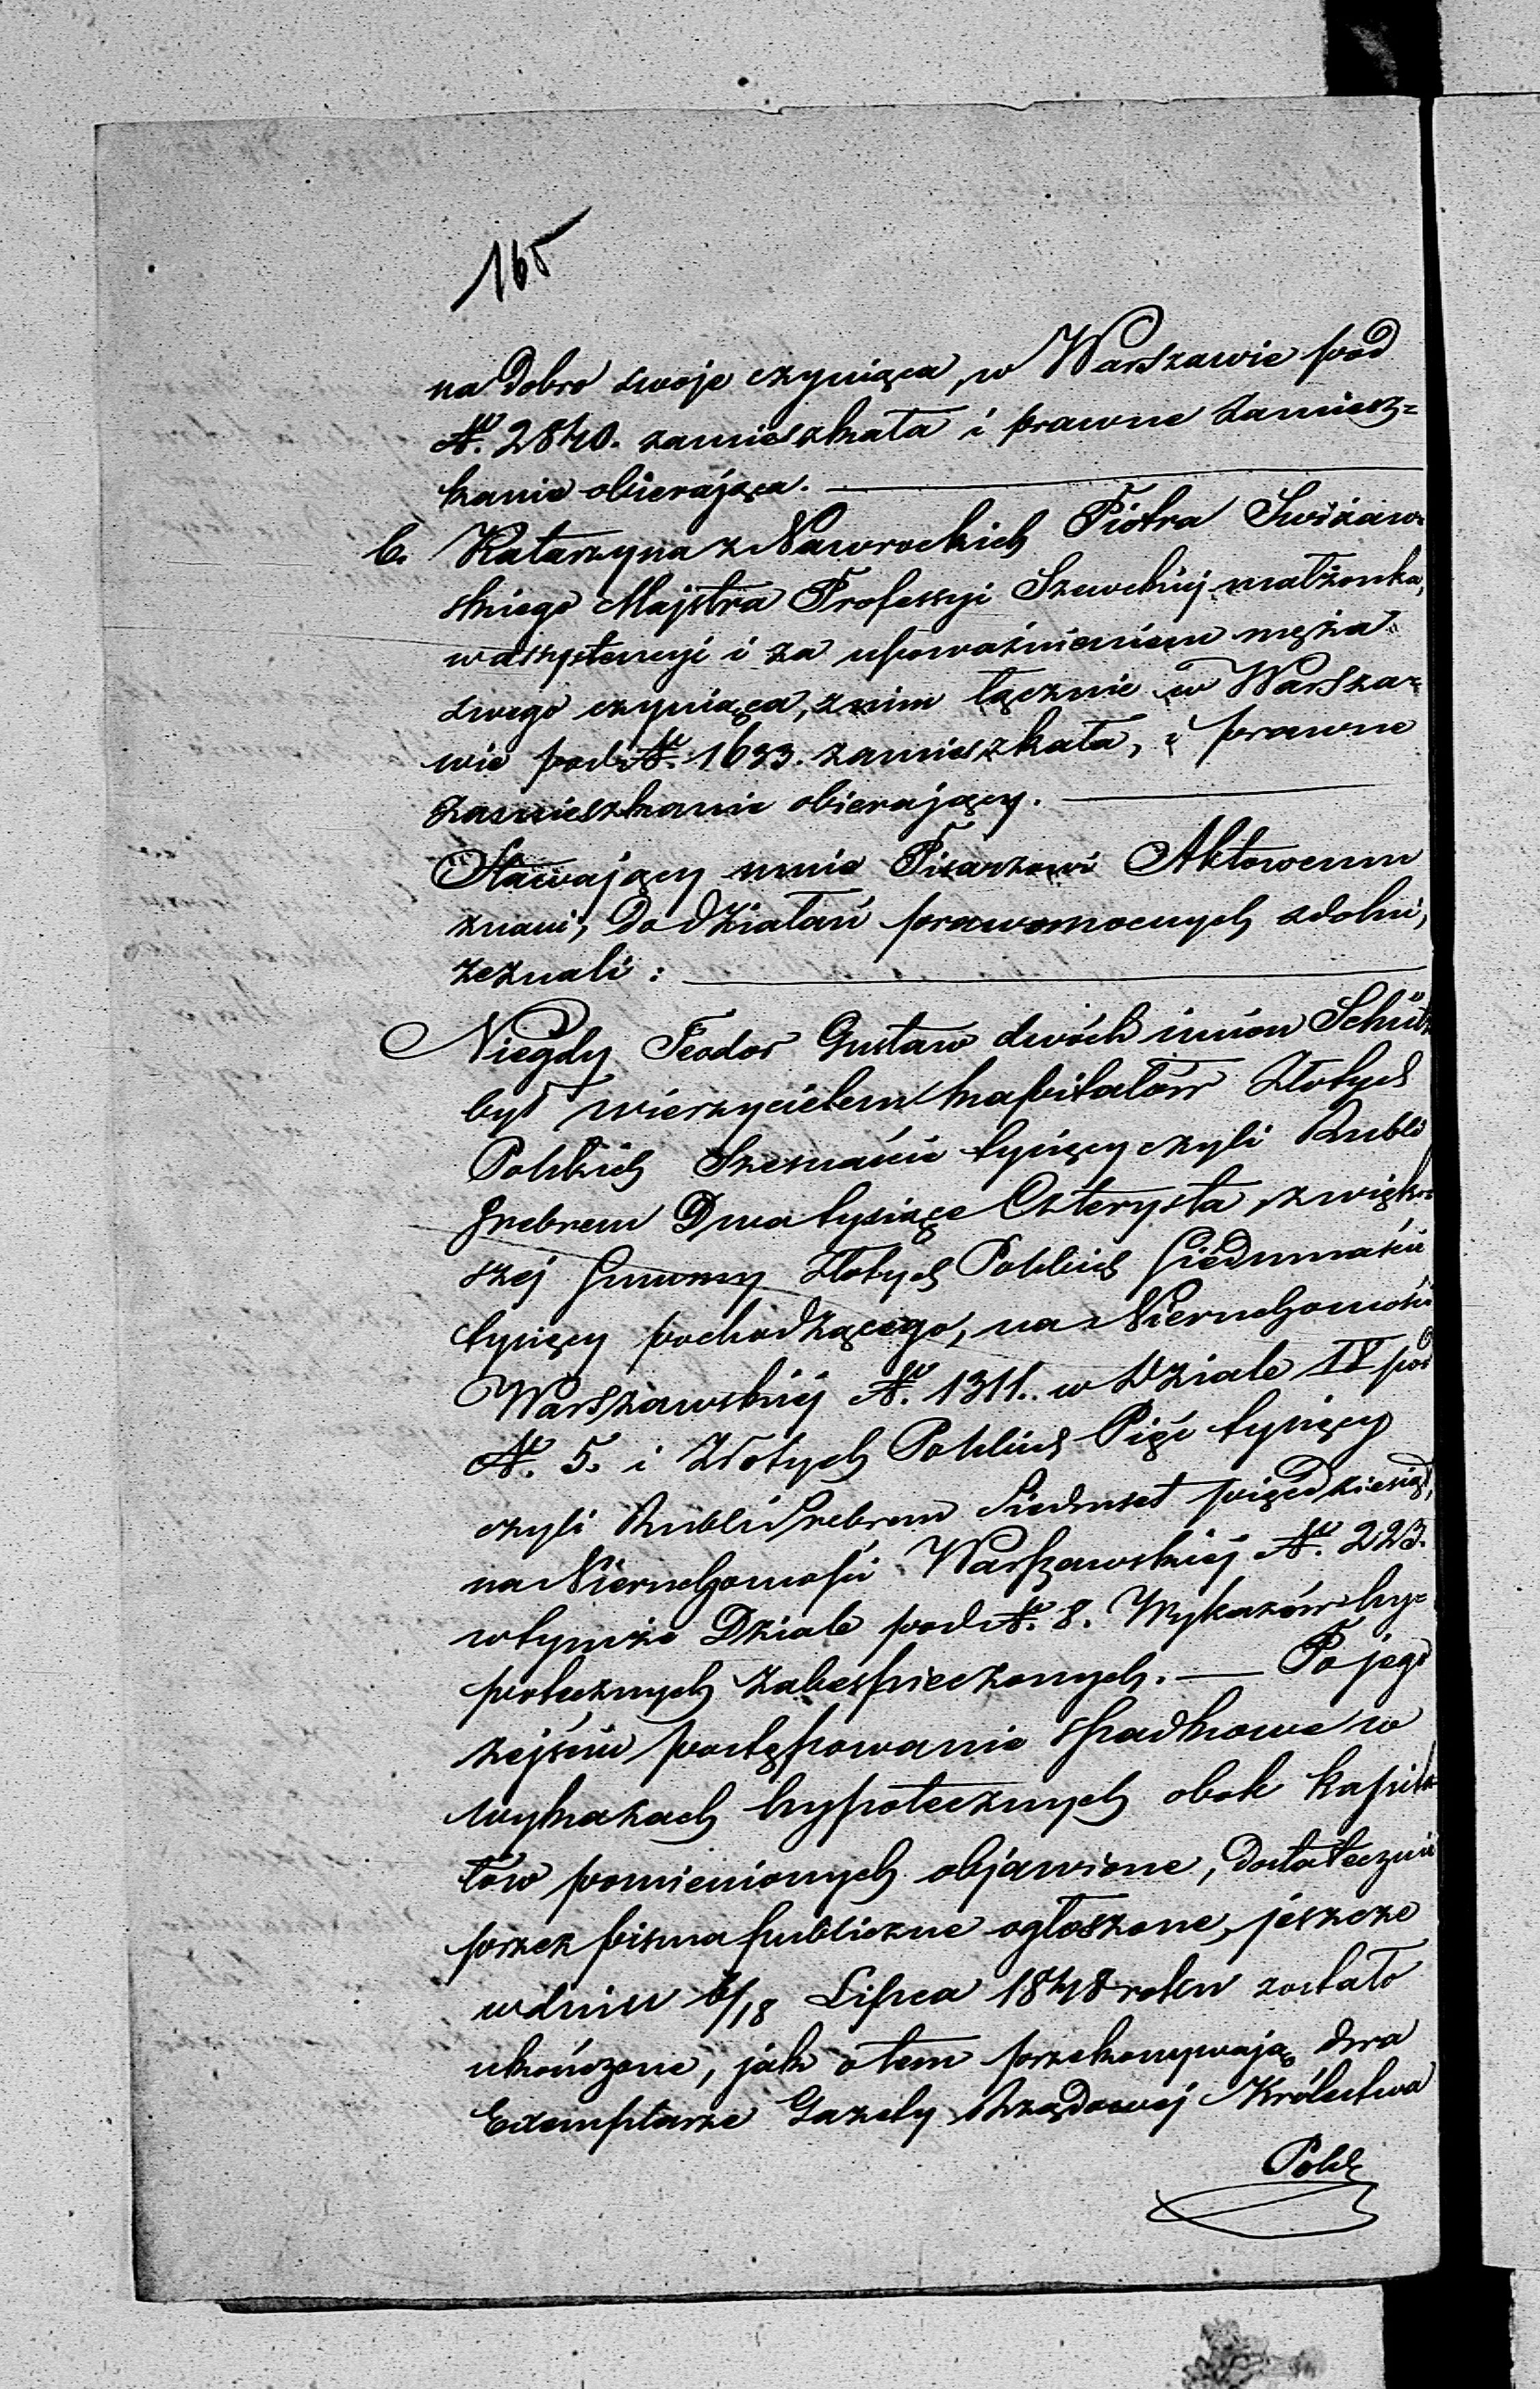 165
na dobro swoje czyniąca, w Warszawie pod
N. 2840. zamieszkała i prawne zamiesz=
kanie obierająca.
Katarzyna z Nawrockich Piotra
skiego Majstra Professyi Szewckiej małżonka,
w assystencyi i za upoważnieniem męża
swego czyniąca, z nim łącznie w Warsza=
wie pod N. 1633. zamieszkała, i prawne
zamieszkanie obierający.
Stawający mnie Pisarzowi Aktowemu
znani, do działań prawomocnych zdolni,
zeznali:
Niegdy Teodor Gustaw dwóch imion Schütz
był wierzycielem kapitałów Złotych
Polskich Szesnaście tysięcy czyli Rubli
Srebrem Dwa tysiące Czterysta, z więk=
szej Summy Złotych Polskich Siedmnaście
tysięcy pochodzącego, na Nieruchomości
Warszawskiej N. 1311. w Dziale IV pod
N. 5. i Złotych Polskich Pięć tysięcy
czyli Rubli Srebrem Siedmset pięćdziesiąt,
na Nieruchomości Warszawskiej N. 223.
w tymże Dziale pod N. 8. Wykazów hy=
potecznych zabespieczonych. — Po jego
zejściu postępowanie spadkowe w
wykazach hypotecznych obok kapita
łów pomienionych objawione, dostatecznie
przez pisma publiczne ogłoszone, jeszcze
w dniu 6/18 Lipca 1848 roku zostało
ukończone, jak o tem przekonywają dwa
Exemplarze Gazety Rządowej Królestwa
Pols